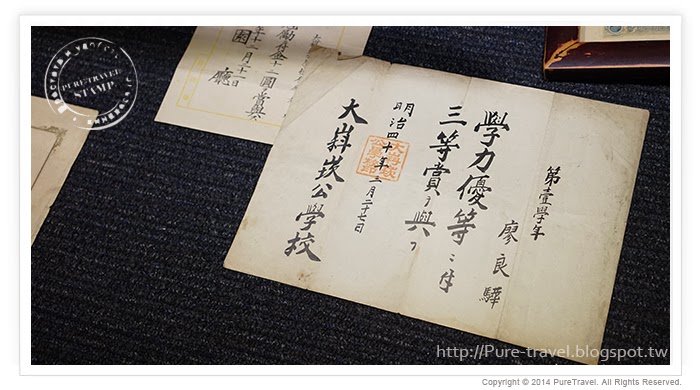 第壹學年
廖良驊
學力優等ニ付
三等賞ヲ與フ
明治四十年三月二十七日
大嵙崁公學校
十二圓賞與
十二月二十一日
廳
PURE TRAVEL
STAMP
http://Pure-travel.blogspot.tw
Copyright © 2014 PureTravel. All Rights Reserved.